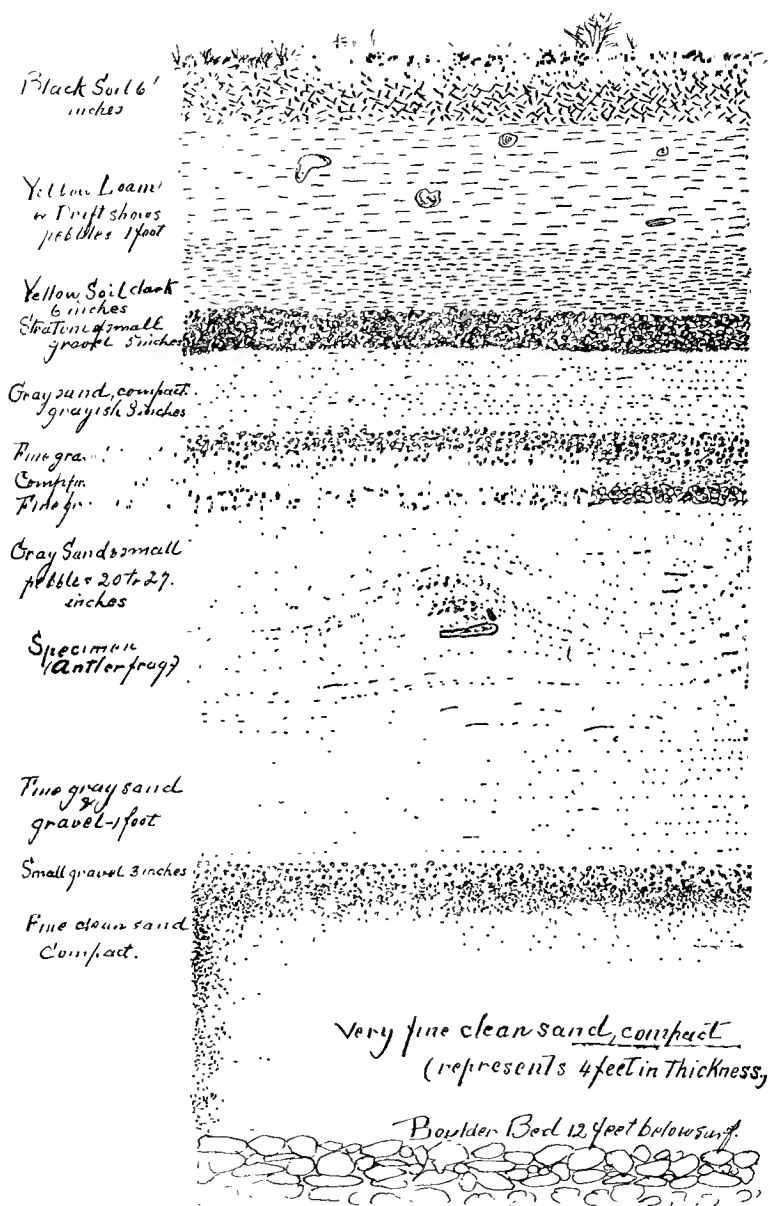 Black Soil 6'
inches
Yellow Loam
or Drift shows
pebbles 1 foot
Yellow Soil dark
6 inches
Stratum of small
gravel 5 inches
Gray sand, compact
grayish 3 inches
Fine
Fine
Gray Sand & small
pebbles 20 to 27.
inches
Specimen
(Antler frag)
Fine gray sand
&
gravel - 1 foot
Small gravel 3 inches
Fine clean sand
Compact.
Very fine clean sand, compact
(represents 4 feet in Thickness,
Boulder Bed 12 feet below surf.